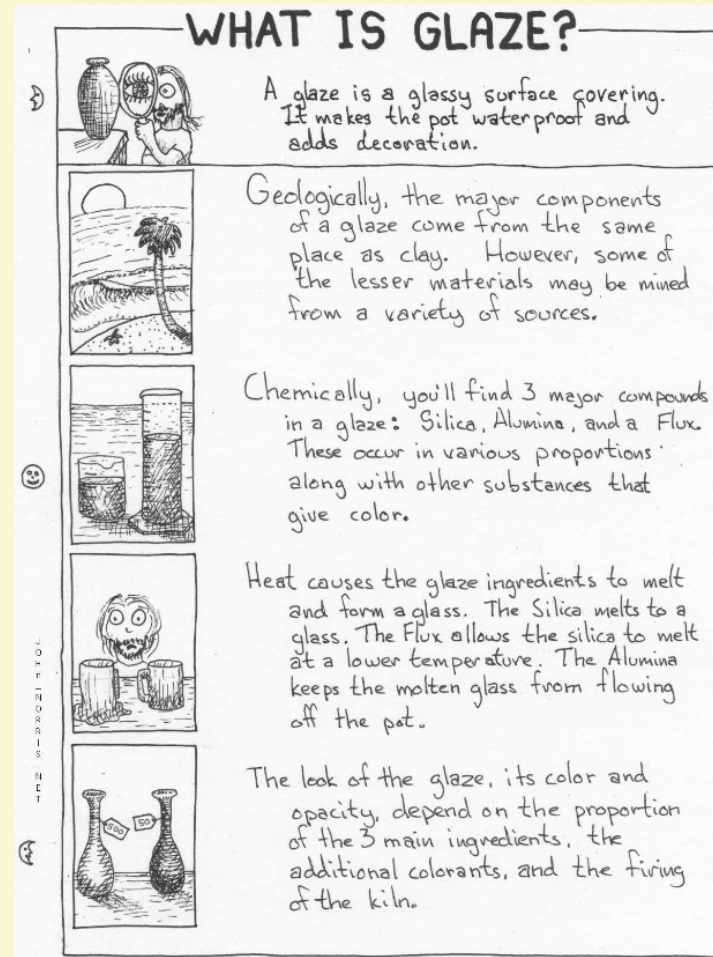 WHAT IS GLAZE?
A glaze is a glassy surface covering.
It makes the pot waterproof and
adds decoration.
Geologically, the major components
of a glaze come from the same
place as clay. However, some of
the lesser materials may be mined
from a variety of sources.
Chemically, you'll find 3 major compounds
in a glaze: Silica, Alumina, and a Flux.
These occur in various proportions
along with other substances that
give color.
Heat causes the glaze ingredients to melt
and form a glass. The Silica melts to a
glass. The Flux allows the silica to melt
at a lower temperature. The Alumina
keeps the molten glass from flowing
off the pot.
The look of the glaze, its color and
opacity, depend on the proportion
of the 3 main ingredients, the
additional colorants, and the firing
of the kiln.
500
50
JOHN NORRIS.NET